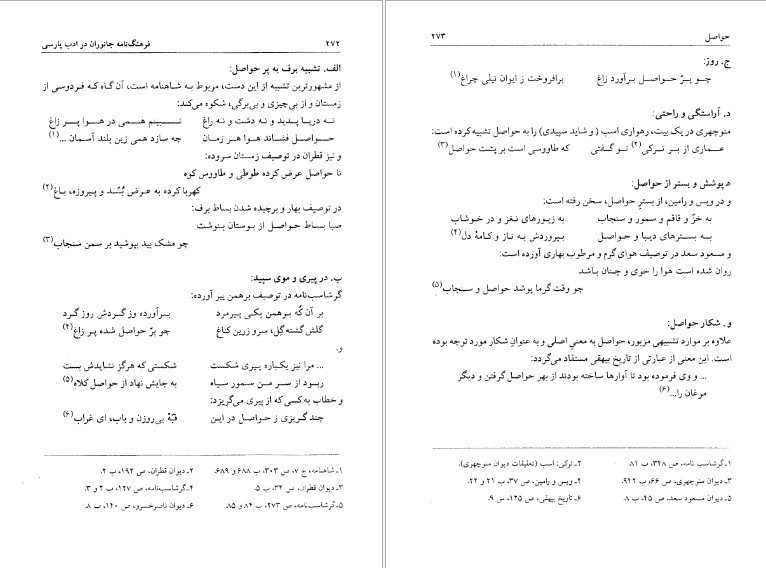 ۲۷۲ فرهنگ‌نامه جانوران در ادب پارسی
الف. تشبیه برف به پر حواصل:
از مشهورترین تشبیه از این دست، مربوط به شاهنامه است، آن گاه که فردوسی از
زمستان و از بی‌چیزی و بی‌برگی، شکوه می‌کند:
نه دریا پدید و نه دشت و نه راغ نبینم همی در هوا پر زاغ
حواصل فشاند هوا هر زمان چه سازد همی زین بلند آسمان ...(۱)
و نیز قطران در توصیف زمستان سروده:
تا حواصل عرض کرده طوطی و طاووس کوه
کهربا کرده به عرض بُسّد و پیروزه، باغ(۲)
در توصیف بهار و برچیده شدن بساط برف:
صبا بساط حواصل از بوستان بنوشت
چو مشک بید بپوشید بر سمن سنجاب(۳)
ب. در پیری و موی سپید:
گرشاسب‌نامه در توصیف برهمن پیر آورده:
بر آن کُه برهمن یکی پیرمرد برآورده وز گردش روز گرد
گلش گشته گِل، سرو زرین کناغ چو برّ حواصل شده پر زاغ(۴)
و.
... مرا نیز یکباره پیری شکست شکستی که هرگز نشایدش بست
ربود از سر من سمور سیاه به جایش نهاد از حواصل کلاه(۵)
و خطاب به کسی که از پیری می‌گریزد:
چند گریزی ز حواصل در این قبّهٔ بی‌روزن و باب، ای غراب(۶)
۱ـ شاهنامه، ج ۷، ص ۳۰۳، ب ۶۸۸ و ۶۸۹. ۲ـ دیوان قطران، ص ۱۹۲، ب ۲.
۳ـ دیوان قطران، ص ۳۴، ب ۵. ۴ـ گرشاسب‌نامه، ص ۱۲۷، ب ۲ و ۳.
۵ـ گرشاسب‌نامه، ص ۲۷۳، ب ۸۴ و ۸۵. ۶ـ دیوان ناصرخسرو، ص ۱۴۰، ب ۸.
حواصل ۲۷۳
ج. روز:
چو پرّ حواصل برآورد زاغ برافروخت ز ایوان نیلی چراغ(۱)
د. آراستگی و راحتی:
منوچهری در یک بیت، رهواری اسب (و شاید سپیدی) را به حواصل تشبیه کرده است:
عماری از بر ترکی(۲) تو گفتی که طاووسی است بر پشت حواصل(۳)
ه‍ پوشش و بستر از حواصل:
و در ویس و رامین، از بسترِ حواصل، سخن رفته است:
به خزّ و قاقم و سمور و سنجاب به زیورهای نغز و در خوشاب
به بسترهای دیبا و حواصل بپروردش به ناز و کامهٔ دل(۴)
و مسعود سعد در توصیف هوای گرم و مرطوب بهاری آورده است:
روان شده است هوا را خوی و چنان باشد
چو وقت گرما پوشد حواصل و سنجاب(۵)
و. شکار حواصل:
علاوه بر موارد تشبیهی مزبور، حواصل به معنیِ اصلی و به عنوانِ شکار مورد توجه بوده
است. این معنی از عبارتی از تاریخ بیهقی مستفاد می‌گردد:
... و وی فرموده بود تا آوارها ساخته بودند از بهر حواصل گرفتن و دیگر
مرغان را...(۶)
۱ـ گرشاسب نامه، ص ۳۴۸، ب ۸۱. ۲ـ ترکی: اسب (تعلیقات دیوان منوچهری).
۳ـ دیوان منوچهری، ص ۶۶، ب ۹۴۲. ۴ـ ویس و رامین، ص ۳۷، ب ۲۱ و ۲۲.
۵ـ دیوان مسعود سعد، ص ۴۵، ب ۸. ۶ـ تاریخ بیهقی، ص ۱۲۵، س ۹.